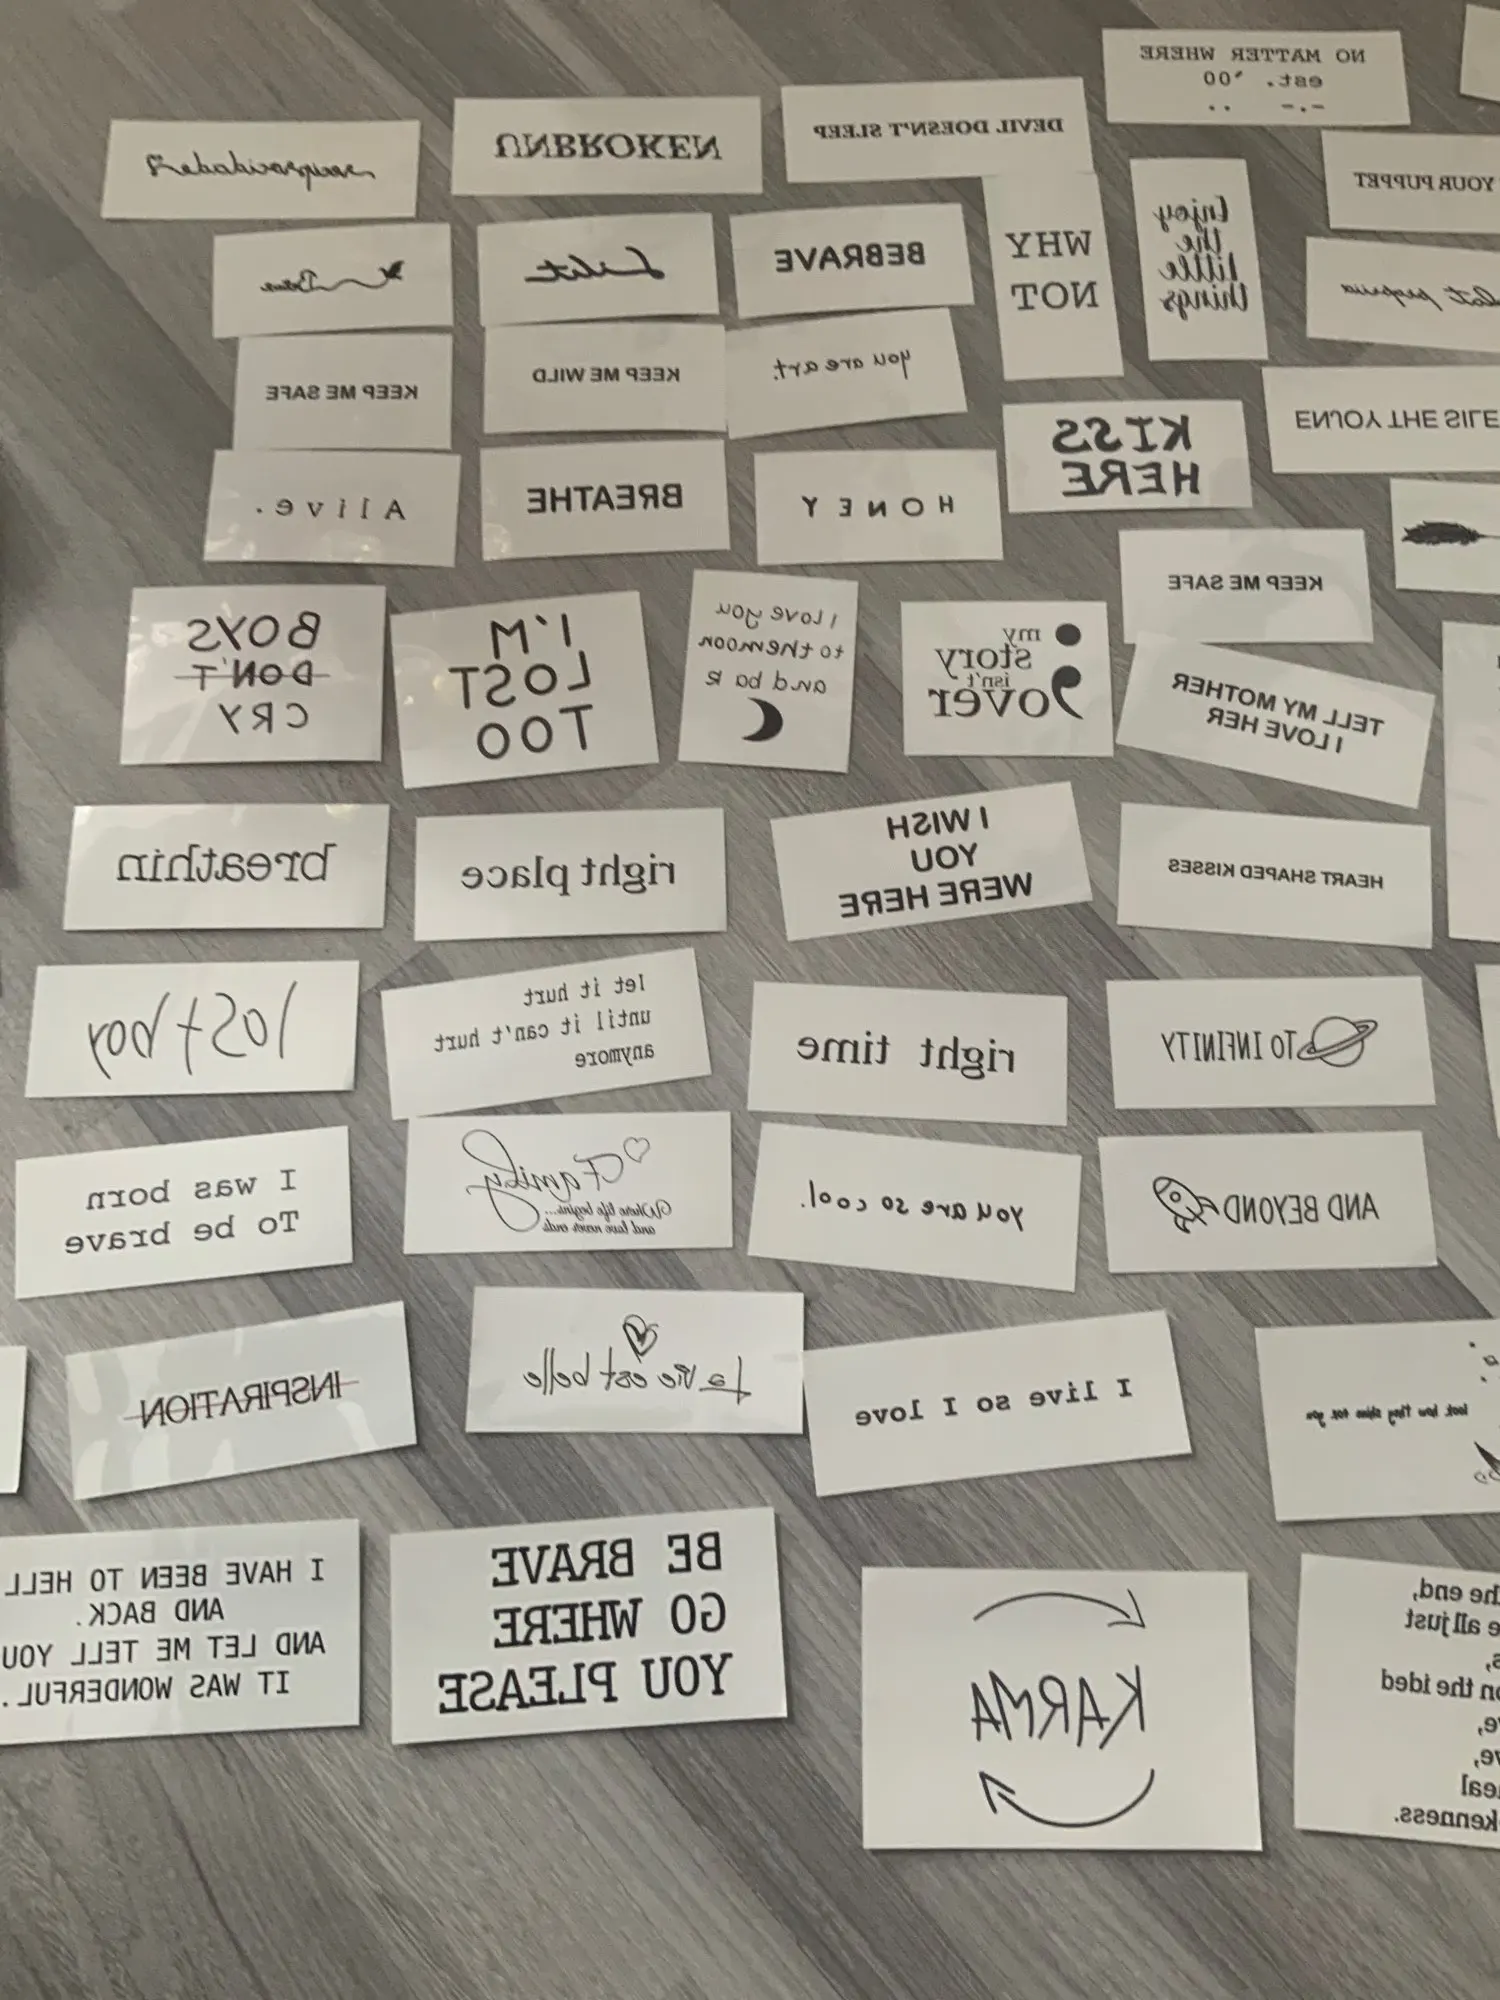 NO MATTER WHERE
est. '00
DEVIL DOESN'T SLEEP
UNBROKEN
YOUR PUPPET
Enjoy
the
little
things
WHY
NOT
BEBRAVE
KEEP ME SAFE
KEEP ME WILD
you are art.
ENJOY THE SILE
KISS
HERE
Alive.
BREATHE
HONEY
KEEP ME SAFE
BOYS
DON'T
CRY
I'M
LOST
TOO
I love you
to the moon
and back
my
story
isn't
over
TELL MY MOTHER
I LOVE HER
breathin
right place
I WISH
YOU
WERE HERE
HEART SHAPED KISSES
lost boy
let it hurt
until it can't hurt
anymore
right time
TO INFINITY
I was born
To be brave
Family
Where life begins...
and love never ends
you are so cool.
AND BEYOND
INSPIRATION
La vie est belle
I live so I love
look how they shine for you
I HAVE BEEN TO HELL
AND BACK.
AND LET ME TELL YOU
IT WAS WONDERFUL.
BE BRAVE
GO WHERE
YOU PLEASE
KARMA
he end,
e all just
on the ided